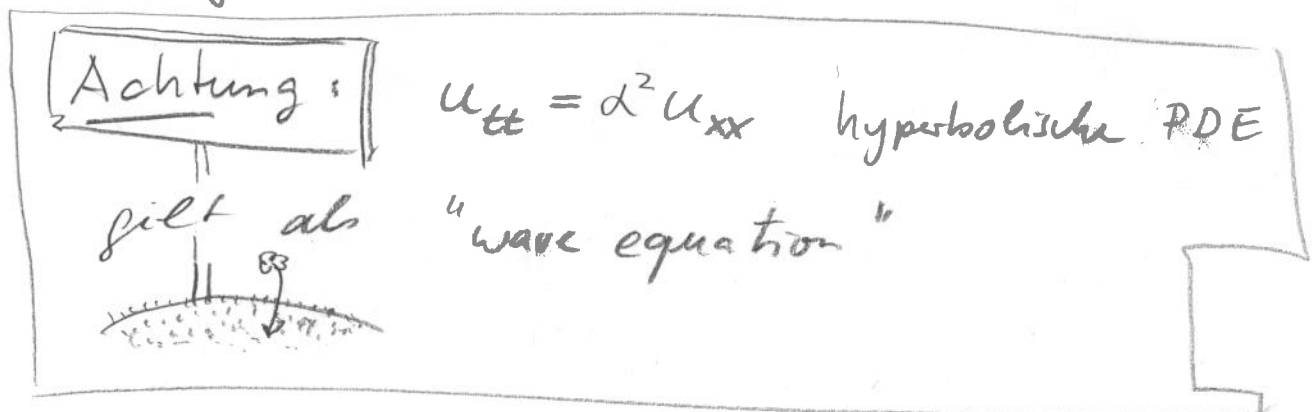 Achtung: u_tt = α² u_xx hyperbolische PDE
gilt als "wave equation"